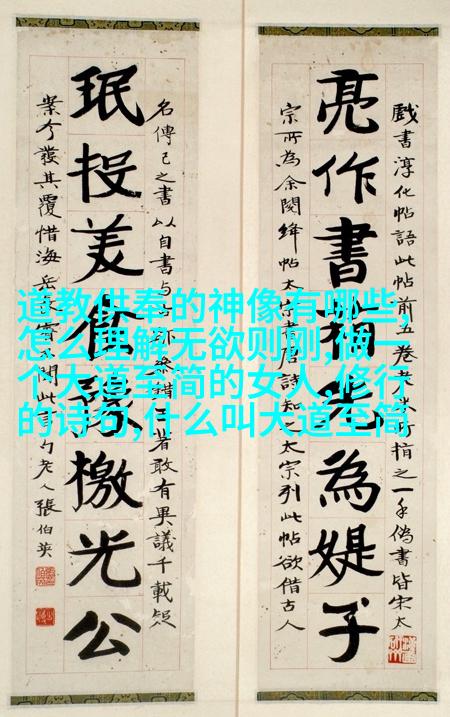 道教供奉的神像有哪些,
怎么理解无欲则刚,做一
个大道至简的女人,修行
的诗句,什么叫大道至简
戲書淳化帖語此帖前五卷指之一手偽書皆宋太
亮作書指為媞子
宗所為余閱絳帖太宗書唐詩知太宗列此帖欲借古人
名傳己之書以自書与著敢有異議千載疑
珉投美豫檄光公
案今發其覆惜海岳此老人張伯英